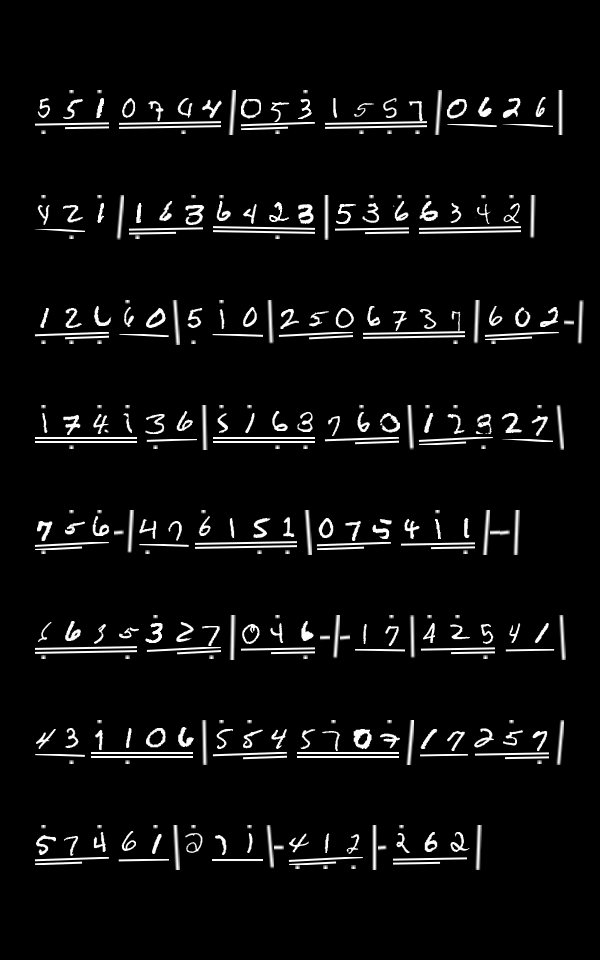 5 5 1 0 7 9 4 | 0 5 3 1 5 5 7 | 0 6 2 6 |
4 2 1 | 1 6 3 6 4 2 3 | 5 3 6 6 3 4 2 |
1 2 6 6 0 | 5 1 0 | 2 5 0 6 7 3 7 | 6 0 2 - |
1 7 4 1 3 6 | 5 1 6 3 7 6 0 | 1 2 3 2 7 |
7 5 6 - | 4 7 6 1 5 1 | 0 7 5 4 1 1 | - - |
6 6 3 5 3 2 7 | 0 4 6 - | - 1 7 | 4 2 5 4 1 |
4 3 1 1 0 6 | 5 5 4 5 7 0 7 | 1 7 2 5 7 |
5 7 4 6 1 | 2 7 1 | - 4 1 2 | - 2 6 2 |